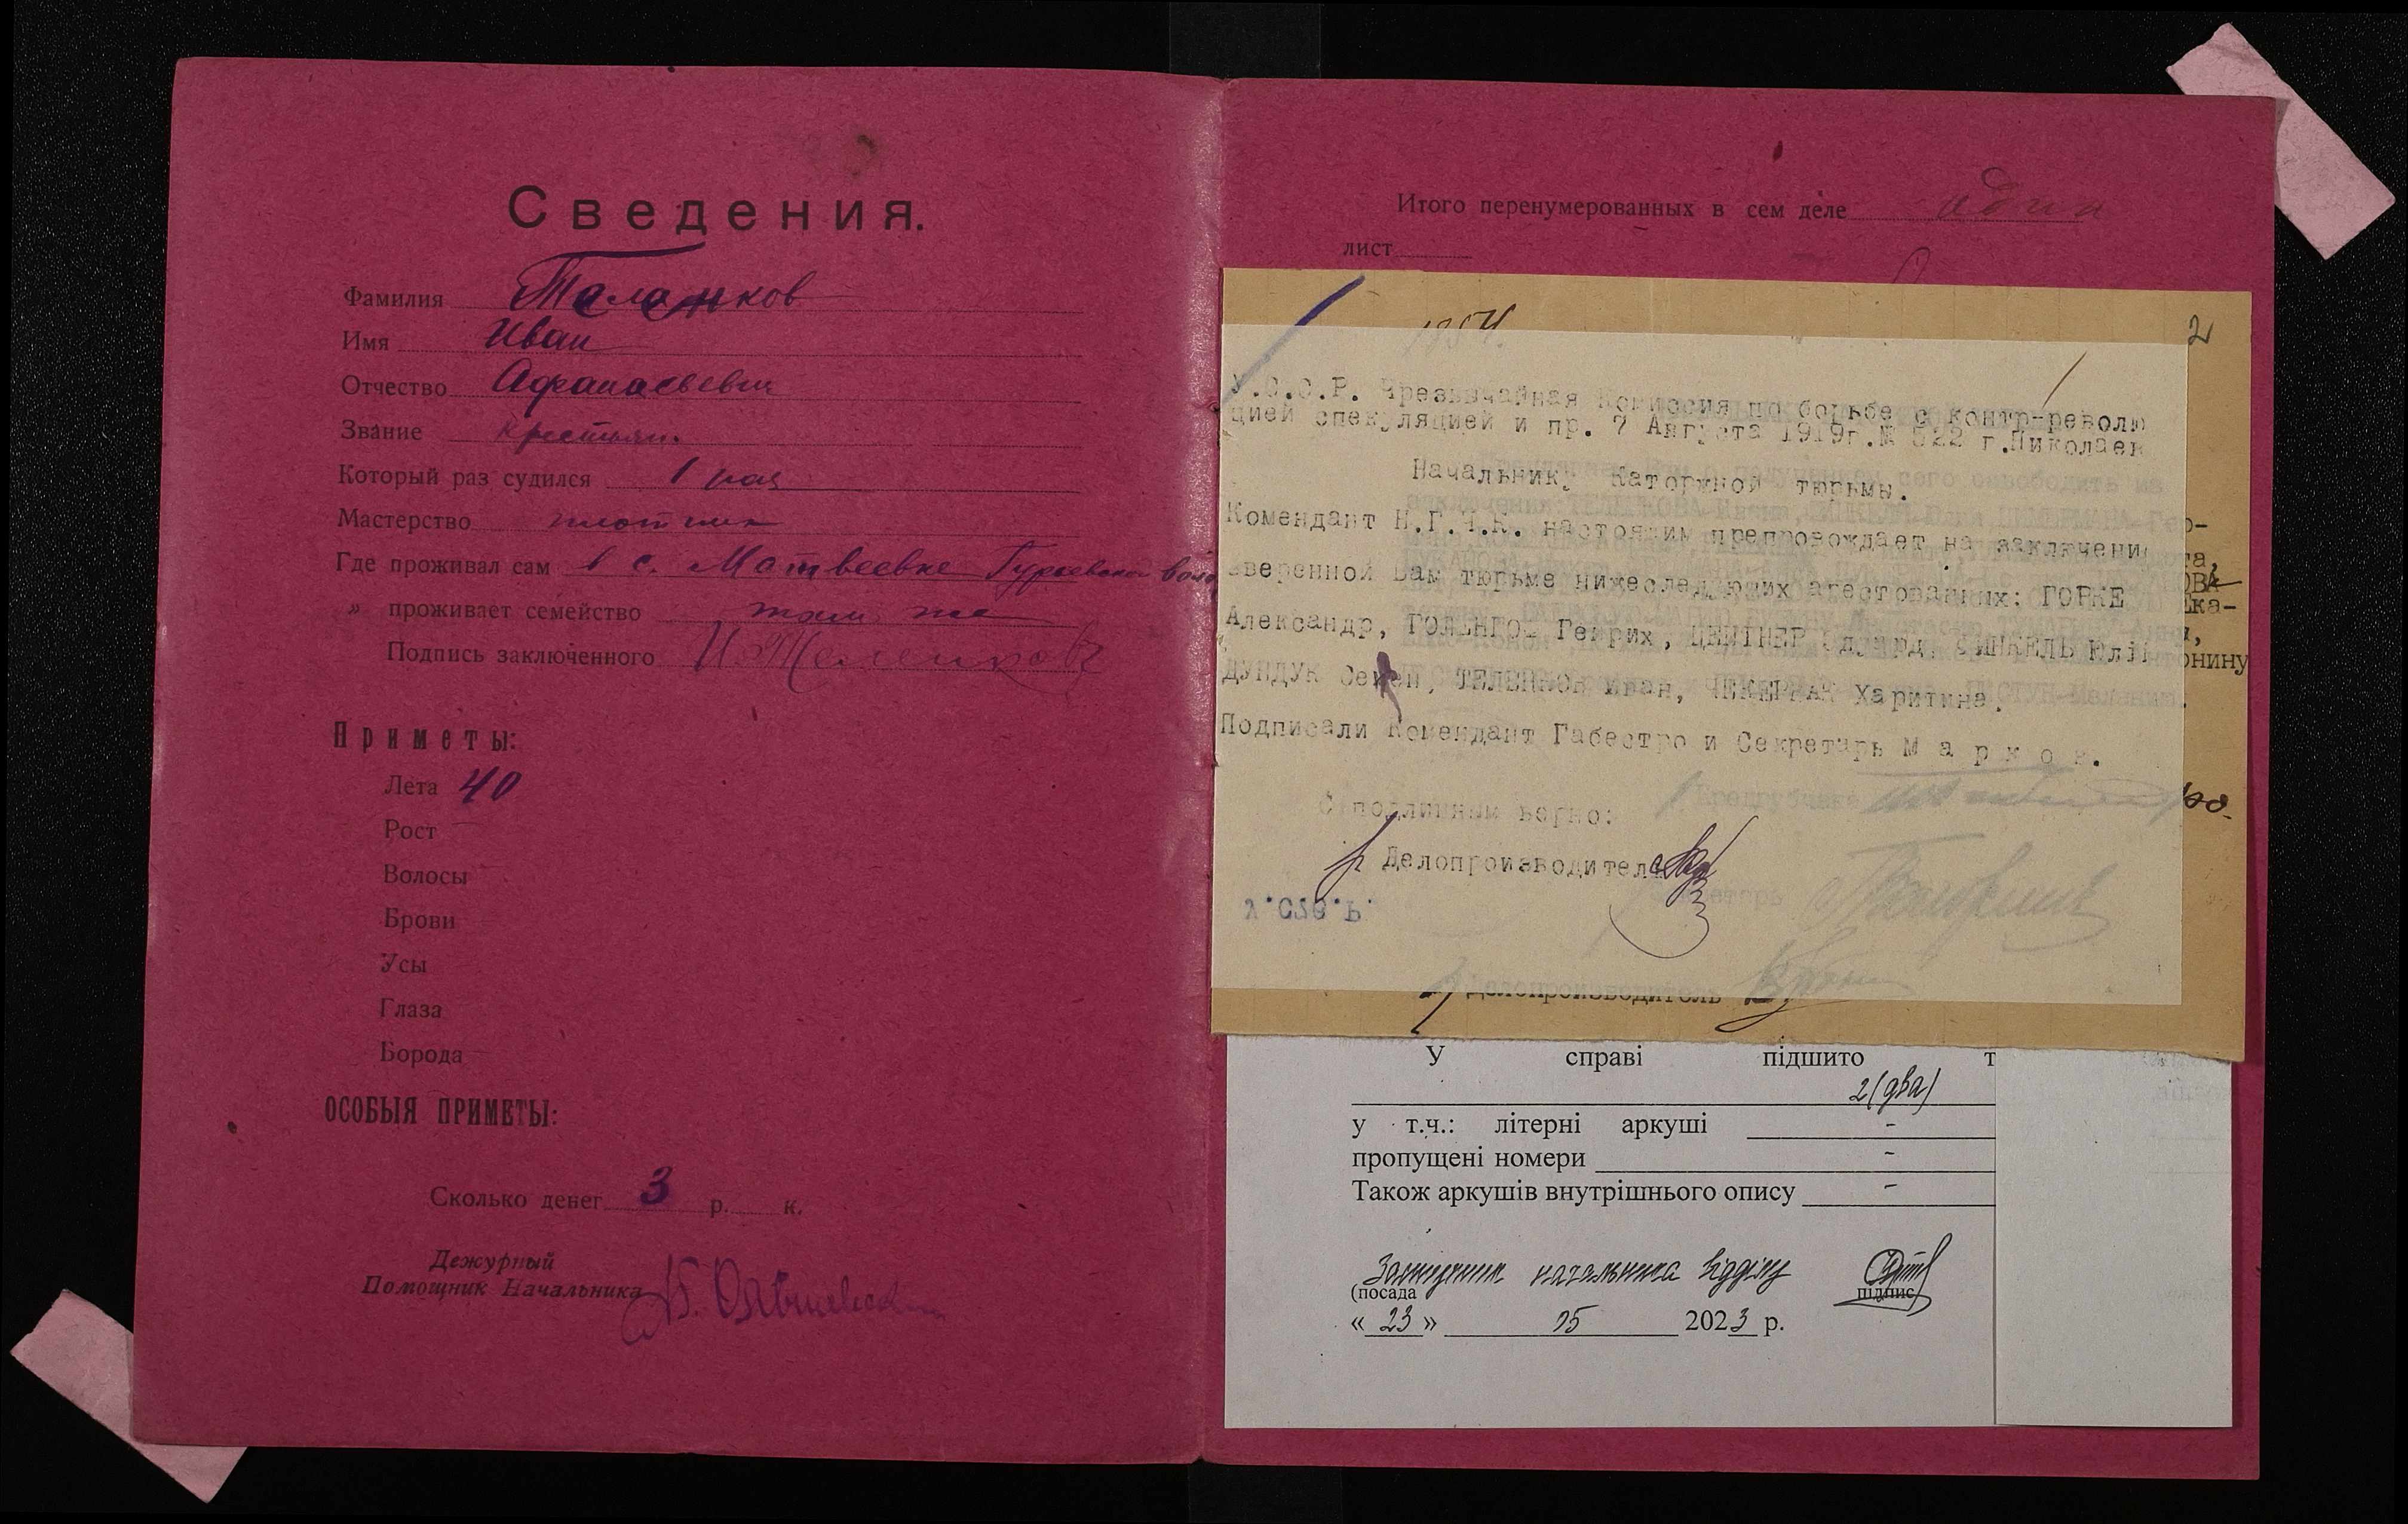 Сведения.
Фамилия Таланков
Имя Иван
Отчество Афанасьевич
Звание крестьян.
Который раз судился 1 раз
Мастерство плотник
Где проживал сам в с. Матвеевке Гурьевской волос
» проживает семейство там же
Подпись заключенного И Теленковъ
Приметы:
Лета 40
Рост
Волосы
Брови
Усы
Глаза
Борода
ОСОБЫЯ ПРИМЕТЫ:
Сколько денег 3 р. к.
Дежурный
Помощник Начальника
Итого перенумерованных в сем деле один
лист
2
У.С.С.Р. Чрезвычайная Комиссия по борьбе с контр-револю
цией спекуляцией и пр. 7 Августа 1919г.№ 522 г.Николаев
Начальнику Каторжной тюрьмы.
Комендант Н.Г.Ч.К. настоящим препровождает на заключени
вверенной Вам тюрьме нижеследующих арестованных: ГОРКЕ
Александр, Генрих, ЦЕЙТНЕР Эдуард, ФИНКЕЛЬ Юлій
ДУНДУК Семен, ТЕЛЕНКОВ Иван, ЧЕКЕРНАК Харитина.
Подписали Комендант Габестро и Секретарь М а р к о в.
С подлинным верно:
Делопроизводитель
Делопроизводитель
У справі підшито т
2 (два)
у т.ч.: літерні аркуші -
пропущені номери -
Також аркушів внутрішнього опису -
Заступник начальника відділу
(посада підпис
« 23 » 05 2023 р.